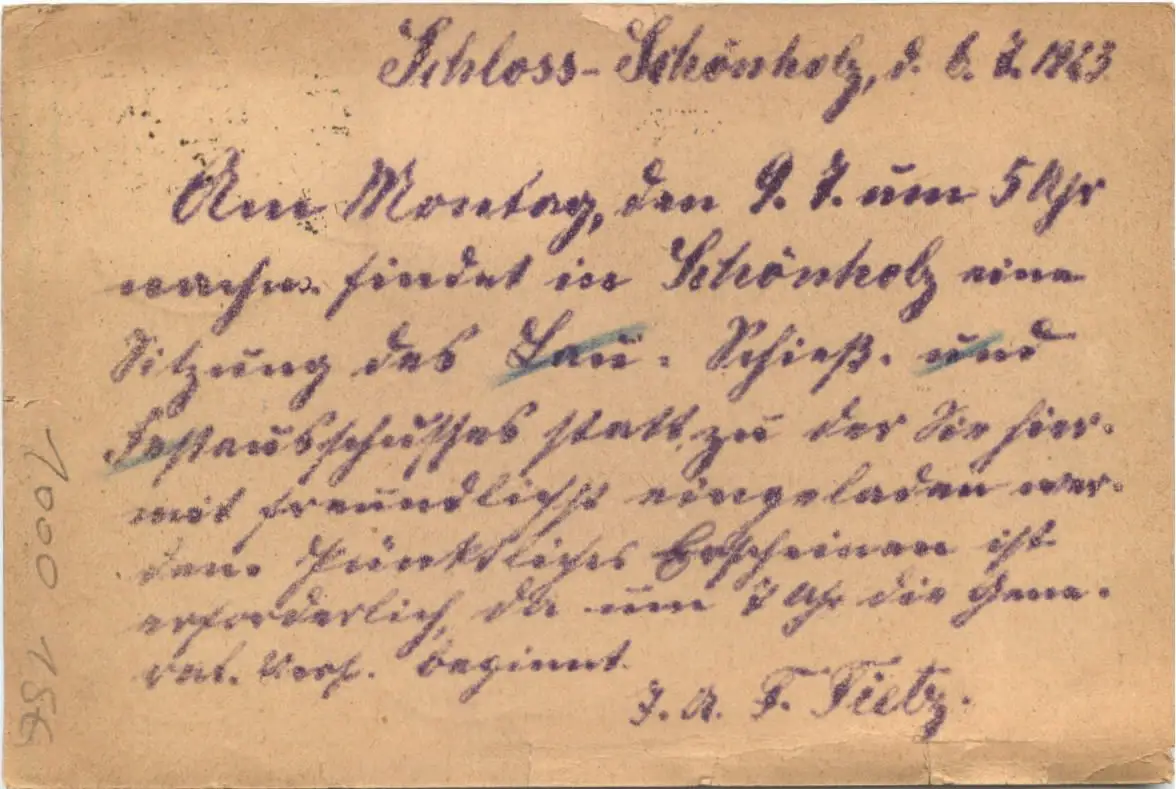 Schloss-Schönholz, d. 6. 7. 1923
Am Montag, den 9. 7. um 5 Uhr
nachm. findet in Schönholz eine
Sitzung des Bau-, Schieß- und
Festausschusses statt, zu der Sie hier-
mit freundlichst eingeladen wer-
den. Pünktliches Erscheinen ist
erforderlich, da um 7 Uhr die Gene-
ral. Vers. beginnt.
J. A. F. Tietz.
1000 186